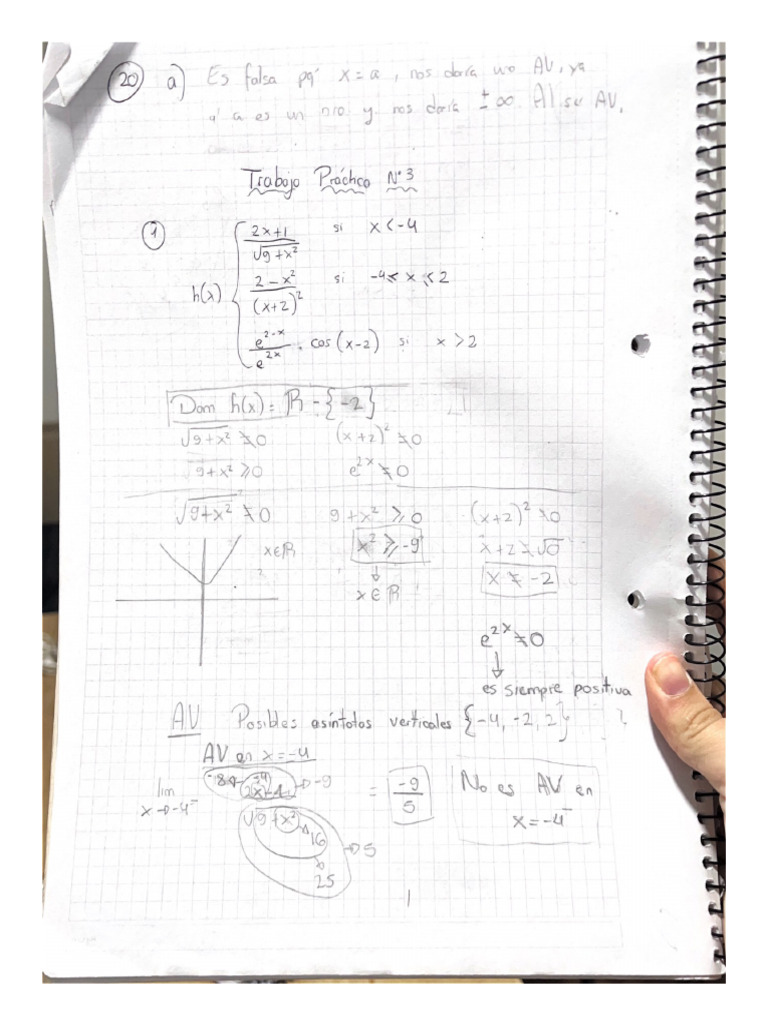 20 a) Es falsa pq' x = a, nos daría una AV, ya
q' a es un nro y nos daría ± ∞ Al ser AV.
Trabajo Práctico N°3
1
h(x) {
2x+1 / √9+x² si x < -4
2-x² / (x+2)² si -4 ≤ x ≤ 2
e^2-x / e^2x . cos (x-2) si x > 2
Dom h(x) = ℝ - {-2}
√9+x² ≠ 0 (x+2)² ≠ 0
√9+x² ≥ 0 e^2x ≠ 0
√9+x² ≠ 0 9+x² ≥ 0 (x+2)² ≠ 0
x∈ℝ x² ≥ -9 x+2 ≠ √0
↓ x ≠ -2
x∈ℝ
e^2x ≠ 0
↓
es siempre positiva
AV Posibles asíntotas verticales {-4, -2, 2}
AV en x = -4
lim x→-4⁻ = -9/5 No es AV en
x = -4⁻
-8 -4 → -9
√9+x² → 5
16
25
1